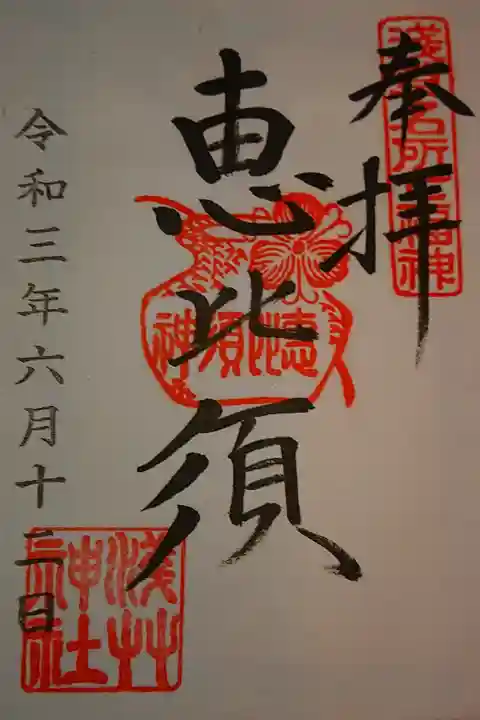 奉拝
浅草名所七福神
恵比須
恵比須神
令和三年六月十二日
淺草神社